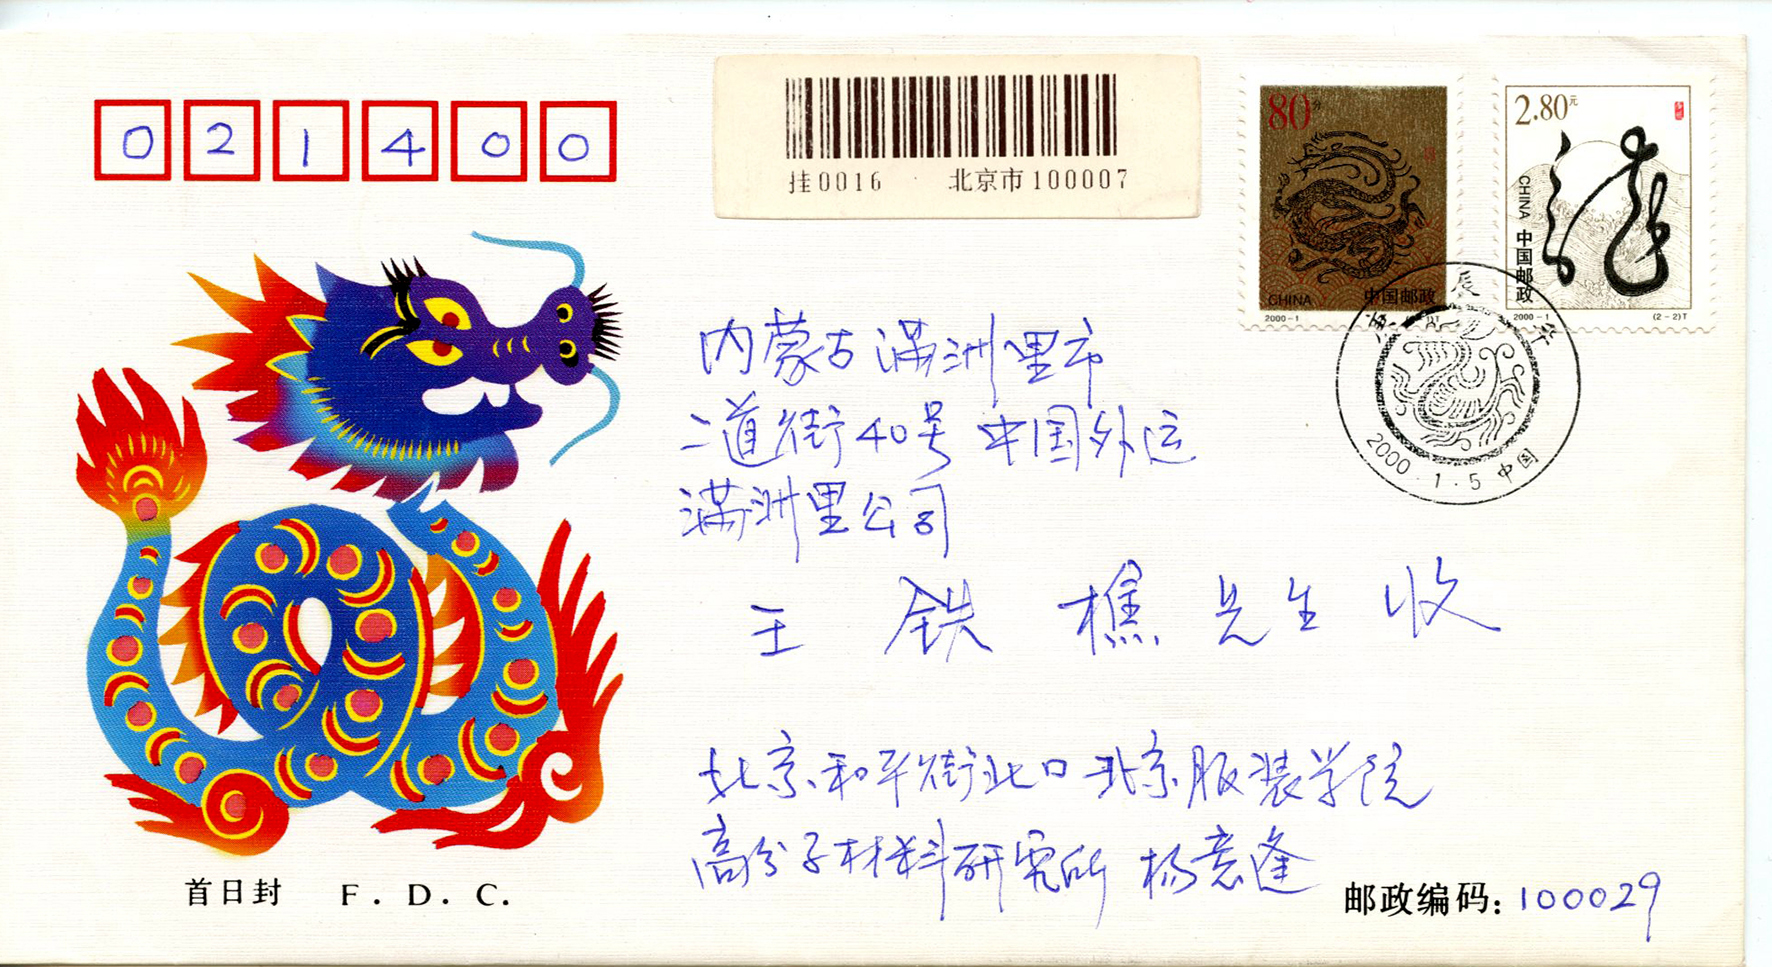 021400
挂0016 北京市100007
80分
CHINA 中国邮政
2000-1
2.80元
CHINA 中国邮政
2000-1 (2-2)T
辰
华
2000.1.5 中国
内蒙古满洲里市
二道街40号 中国外运
满洲里公司
王 铁 樵 先生 收
北京和平街北口北京服装学院
高分子材料研究所 杨意逢
首日封 F.D.C.
邮政编码:100029